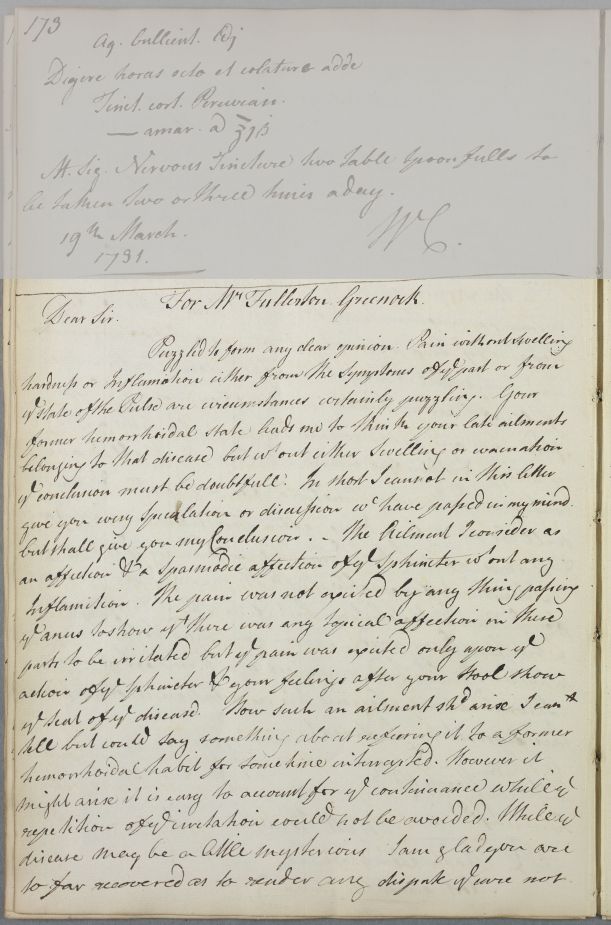 173
Aq. bullient. ℔j
Digere horas octo et colaturæ adde
Tinct. cort. Peruvian.
— amar. a ʒjß
M. Sig. Nervous Tincture two table spoonfulls to
be taken two or three times a day.
19th March.
1791.
W C.
For Mr Fullerton Greenock.
Dear Sir.
Puzzled to form any clear opinion. Pain without Swelling
hardness or Inflamation either from the Symptoms of ye part or from
ye State of the Pulse are circumstances certainly puzzling. Your
former hemorrhoidal state leads me to think your late ailments
belonging to that disease but wt out either Swelling or evacuation
ye conclusion must be doubtfull. In short I cannot in this letter
give you every Speculation or discussion wc have passed in my mind
but shall give you my Conclusion. - The Ailment I consider as
an affection & a Spasmodic affection of ye Sphincter wt out any
Inflamition. The pain was not excited by any thing passing
ye anus to show yt there was any topical affection in these
parts to be irritated but ye pain was excited only upon ye
action of ye Sphincter & your feelings after your Stool show
ye Seat of ye disease. How such an ailment shd arise I cant
tell but could say something about referring it to a former
hemorrhoidal habit for some time interrupted. However it
might arise it is easy to account for ye continuance while ye
repetition of ye irritation could not be avoided. While ye
disease may be a little mysterious I am glad you are
so far recovered as to render any dispute ye cure not